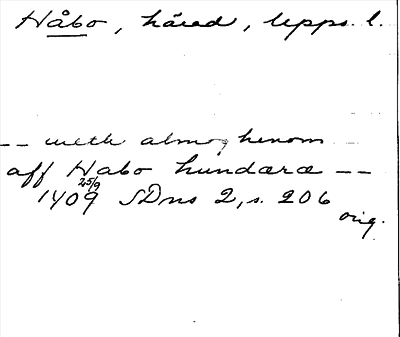 Håbo, härad, Upps. l.
-- meth almoghenom --
aff Habo hundæræ --
25/9
1409 SDns 2, s. 206
orig.